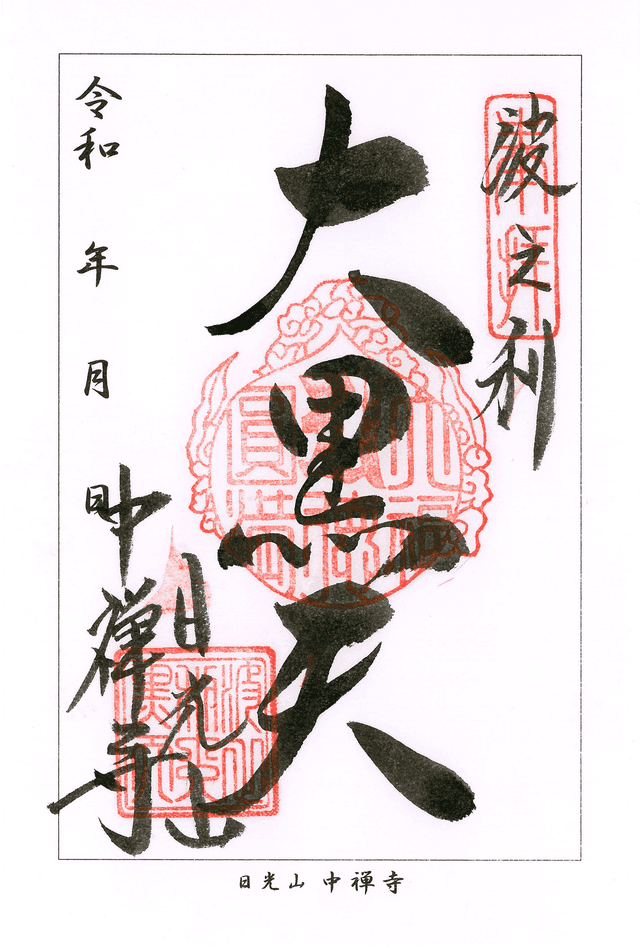 奉拝
波之利
大黒天
日光山
中禅寺
令和 年 月 日
日光山 中禅寺